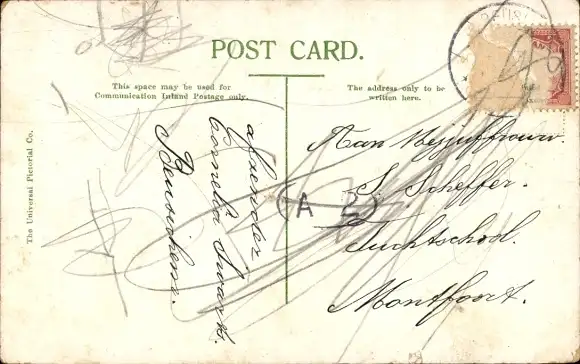 POST CARD.
This space may be used for
Communication Inland Postage only.
The address only to be
written here.
The Universal Pictorial Co.
afzender
Cornelia Swart.
Beusichem.
Aan Mejuffrouw.
S. Scheffer.
Tuchtschool.
Montfoort.
A 2